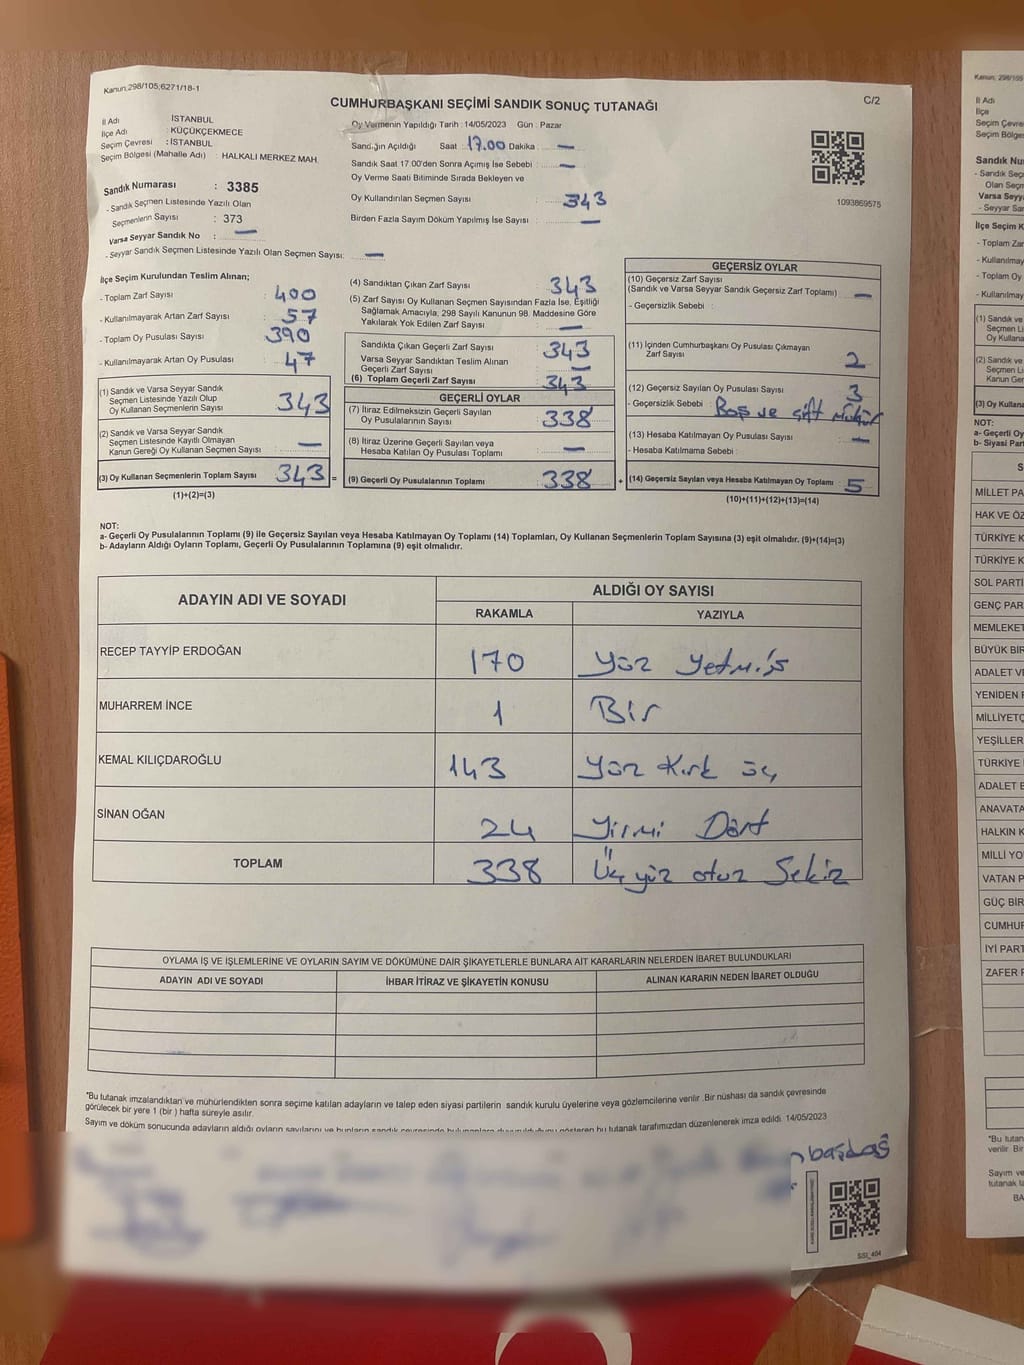 Kanun;298/105;6271/18-1
C/2
CUMHURBAŞKANI SEÇİMİ SANDIK SONUÇ TUTANAĞI
İl Adı : İSTANBUL
İlçe Adı : KÜÇÜKÇEKMECE
Seçim Çevresi : İSTANBUL
Seçim Bölgesi (Mahalle Adı) : HALKALI MERKEZ MAH.
Oy Vermenin Yapıldığı Tarih : 14/05/2023 Gün : Pazar
Sandığın Açıldığı Saat : 17.00 Dakika : —
Sandık Saat 17.00'den Sonra Açımış İse Sebebi : —
Oy Verme Saati Bitiminde Sırada Bekleyen ve
Oy Kullandırılan Seçmen Sayısı : 343
Birden Fazla Sayım Döküm Yapılmış İse Sayısı : —
1093869575
Sandık Numarası : 3385
- Sandık Seçmen Listesinde Yazılı Olan
Seçmenlerin Sayısı : 373
Varsa Seyyar Sandık No : —
- Seyyar Sandık Seçmen Listesinde Yazılı Olan Seçmen Sayısı: —
İlçe Seçim Kurulundan Teslim Alınan;
- Toplam Zarf Sayısı : 400
- Kullanılmayarak Artan Zarf Sayısı : 57
- Toplam Oy Pusulası Sayısı : 390
- Kullanılmayarak Artan Oy Pusulası : 47
(1) Sandık ve Varsa Seyyar Sandık
Seçmen Listesinde Yazılı Olup
Oy Kullanan Seçmenlerin Sayısı : 343
(2) Sandık ve Varsa Seyyar Sandık
Seçmen Listesinde Kayıtlı Olmayan
Kanun Gereği Oy Kullanan Seçmen Sayısı : —
(3) Oy Kullanan Seçmenlerin Toplam Sayısı : 343 =
(1)+(2)=(3)
(4) Sandıktan Çıkan Zarf Sayısı : 343
(5) Zarf Sayısı Oy Kullanan Seçmen Sayısından Fazla İse, Eşitliği
Sağlamak Amacıyla, 298 Sayılı Kanunun 98. Maddesine Göre
Yakılarak Yok Edilen Zarf Sayısı : —
Sandıkta Çıkan Geçerli Zarf Sayısı : 343
Varsa Seyyar Sandıktan Teslim Alınan
Geçerli Zarf Sayısı : —
(6) Toplam Geçerli Zarf Sayısı : 343
GEÇERLİ OYLAR
(7) İtiraz Edilmeksizin Geçerli Sayılan
Oy Pusulalarının Sayısı : 338
(8) İtiraz Üzerine Geçerli Sayılan veya
Hesaba Katılan Oy Pusulası Toplamı : —
(9) Geçerli Oy Pusulalarının Toplamı : 338 +
GEÇERSİZ OYLAR
(10) Geçersiz Zarf Sayısı
(Sandık ve Varsa Seyyar Sandık Geçersiz Zarf Toplamı) : —
- Geçersizlik Sebebi :
(11) İçinden Cumhurbaşkanı Oy Pusulası Çıkmayan
Zarf Sayısı : 2
(12) Geçersiz Sayılan Oy Pusulası Sayısı : 3
- Geçersizlik Sebebi : Boş ve çift mühür
(13) Hesaba Katılmayan Oy Pusulası Sayısı : —
- Hesaba Katılmama Sebebi :
(14) Geçersiz Sayılan veya Hesaba Katılmayan Oy Toplamı : 5
(10)+(11)+(12)+(13)=(14)
NOT:
a- Geçerli Oy Pusulalarının Toplamı (9) ile Geçersiz Sayılan veya Hesaba Katılmayan Oy Toplamı (14) Toplamları, Oy Kullanan Seçmenlerin Toplam Sayısına (3) eşit olmalıdır. (9)+(14)=(3)
b- Adayların Aldığı Oyların Toplamı, Geçerli Oy Pusulalarının Toplamına (9) eşit olmalıdır.
ADAYIN ADI VE SOYADI
ALDIĞI OY SAYISI
RAKAMLA YAZIYLA
RECEP TAYYİP ERDOĞAN 170 Yüz Yetmiş
MUHARREM İNCE 1 Bir
KEMAL KILIÇDAROĞLU 143 Yüz Kırk üç
SİNAN OĞAN 24 Yirmi Dört
TOPLAM 338 Üçyüz otuz Sekiz
OYLAMA İŞ VE İŞLEMLERİNE VE OYLARIN SAYIM VE DÖKÜMÜNE DAİR ŞİKAYETLERLE BUNLARA AİT KARARLARIN NELERDEN İBARET BULUNDUKLARI
ADAYIN ADI VE SOYADI İHBAR İTİRAZ VE ŞİKAYETİN KONUSU ALINAN KARARIN NEDEN İBARET OLDUĞU
*Bu tutanak imzalandıktan ve mühürlendikten sonra seçime katılan adayların ve talep eden siyasi partilerin sandık kurulu üyelerine veya gözlemcilerine verilir .Bir nüshası da sandık çevresinde
görülecek bir yere 1 (bir ) hafta süreyle asılır.
Sayım ve döküm sonucunda adayların aldığı oyların sayılarını ve bunların sandık çevresinde gösteren bu tutanak tarafımızdan düzenlenerek imza edildi. 14/05/2023
SSI_404
Kanun; 298/105
İl Adı
İlçe
Seçim Çevre
Seçim Bölges
Sandık Nu
- Sandık Seç
Olan Seçm
Varsa Seyy
- Seyyar San
İlçe Seçim K
- Toplam Zar
- Kullanılmay
- Toplam Oy
- Kullanılmay
(1) Sandık ve
Seçmen Li
Oy Kullana
(2) Sandık ve
Seçmen Li
Kanun Ger
(3) Oy Kullana
NOT:
a- Geçerli Oy
b- Siyasi Part
S
MİLLET PA
HAK VE ÖZ
TÜRKİYE K
TÜRKİYE K
SOL PARTİ
GENÇ PAR
MEMLEKET
BÜYÜK BİR
ADALET VE
YENİDEN F
MİLLİYETÇ
YEŞİLLER
TÜRKİYE İ
ADALET B
ANAVATA
HALKIN K
MİLLİ YO
VATAN P
GÜÇ BİR
CUMHUR
İYİ PART
ZAFER P
*Bu tutan
verilir Bir
Sayım ve
tutanak ta
BA